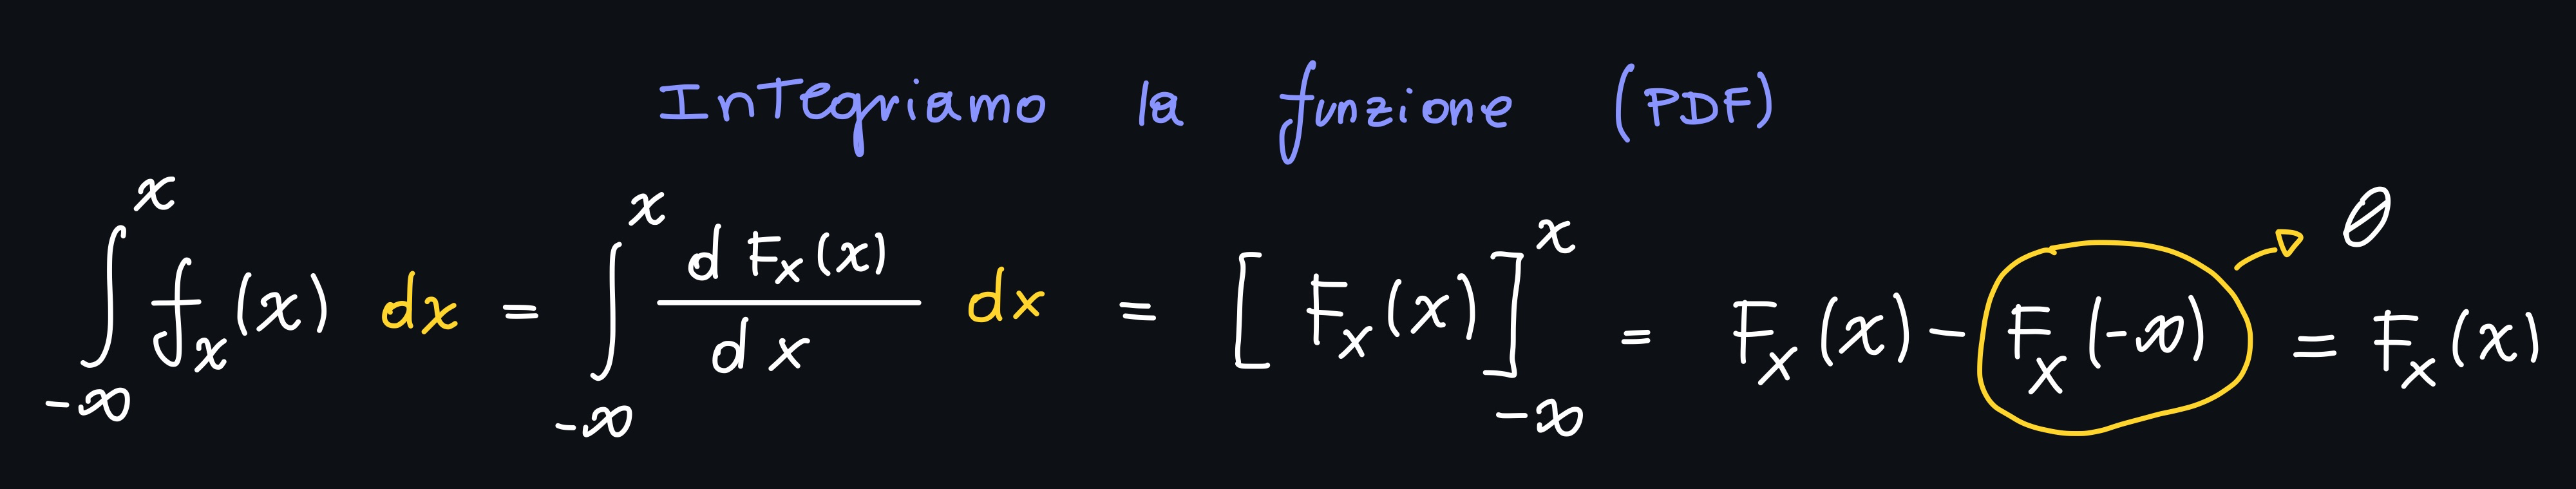 Integriamo la funzione (PDF)
∫_{-∞}^{x} f_x(x) dx = ∫_{-∞}^{x} \frac{d F_x(x)}{dx} dx = [F_x(x)]_{-∞}^{x} = F_x(x) - F_x(-∞) → 0 = F_x(x)